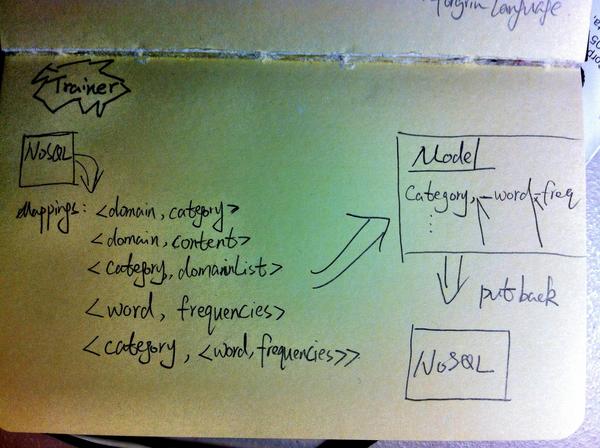 Language
Trainer
NoSQL
Mappings: <domain, category>
<domain, content>
<category, domainList>
<word, frequencies>
<category, <word, frequencies>>
Model
Category, -word-freq
⋮
put back
NoSQL